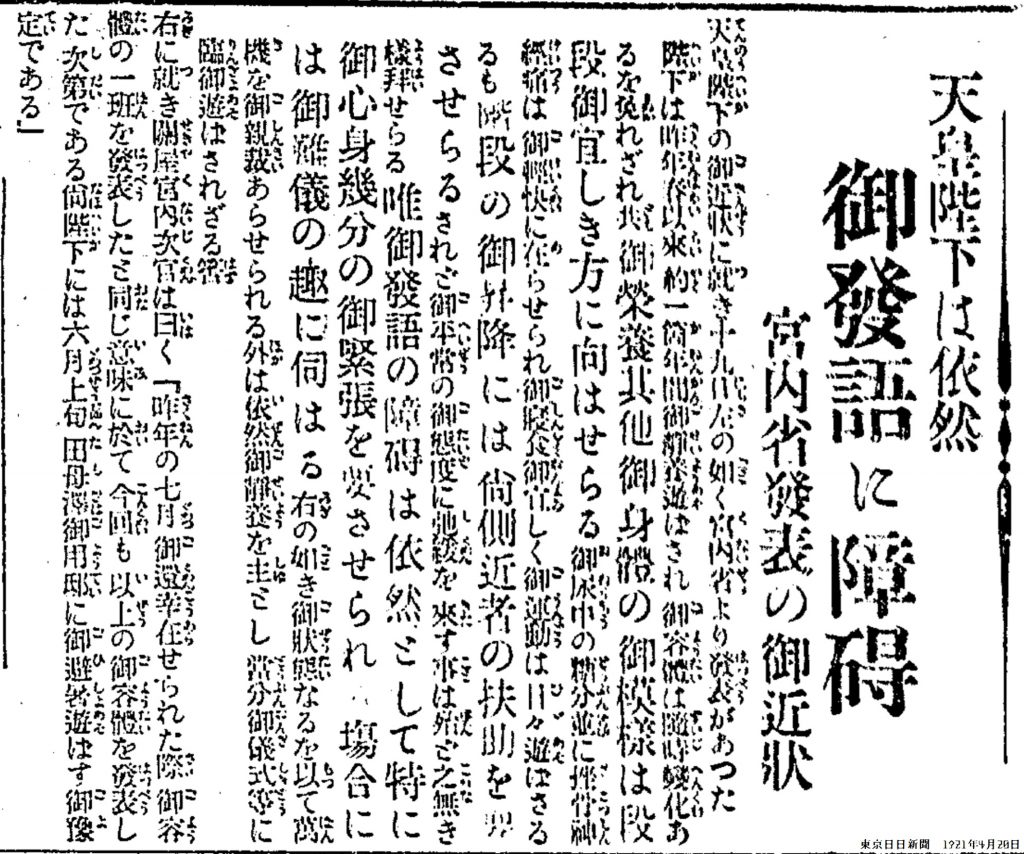 天皇陛下は依然
御發語に障碍
宮内省發表の御近狀
天皇陛下の御近狀に就き十九日左の如く宮内省より發表があつた
陛下は昨年春以來約一箇年間御靜養遊ばされ御容體は隨時變化あ
るを免れざれ共御榮養其他御身體の御模樣は段
段御宜しき方に向はせらる御尿中の糖分並に挫骨神
經痛は御輕快に在らせられ御寢食御宜しく御運動は日々遊ばさる
るも階段の御昇降には尙側近者の扶助を要
させらるされど御平常の御態度に弛緩を來す事は殆ど之無き
樣拜せらる唯御發語の障碍は依然として特に
御心身幾分の御緊張を要させられ 塲合に
は御難儀の趣に伺はる右の如き御狀態なるを以て萬
機を御親裁あらせられる外は依然御靜養を主とし當分御儀式等に
臨御遊ばされざる筈
右に就き關屋宮内次官は曰く「昨年の七月御還幸在せられた際御容
體の一班を發表したと同じ意味に於て今回も以上の御容體を發表し
た次第である尙陛下には六月上旬田母澤御用邸に御避暑遊ばす御豫
定である」
東京日日新聞 1921年4月20日